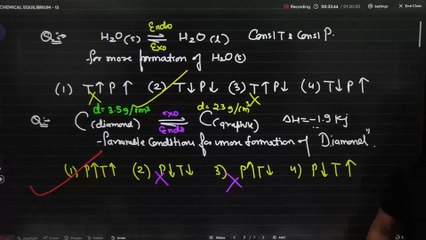 CHEMICAL EQUILIBRIUM - 13
Recording
00:03:44
05:30:00
End Class
Q:- H₂O(s) Endo ⇌ Exo H₂O(l) Const T & Const P.
for more formation of H₂O(s)
(1) T↑P↑ (2) T↓P↓ (3) T↑P↑ (4) T↓P↑
d=3.5g/cm³ d=2.3g/cm³
Q:- C(diamond) exo ⇌ Endo C(graphite) ΔH=-1.9 kj
- favorable Conditions for more formation of "Diamond"
(1) P↑T↑ (2) P↓T↓ 3) P↑T↓ 4) P↓T↑